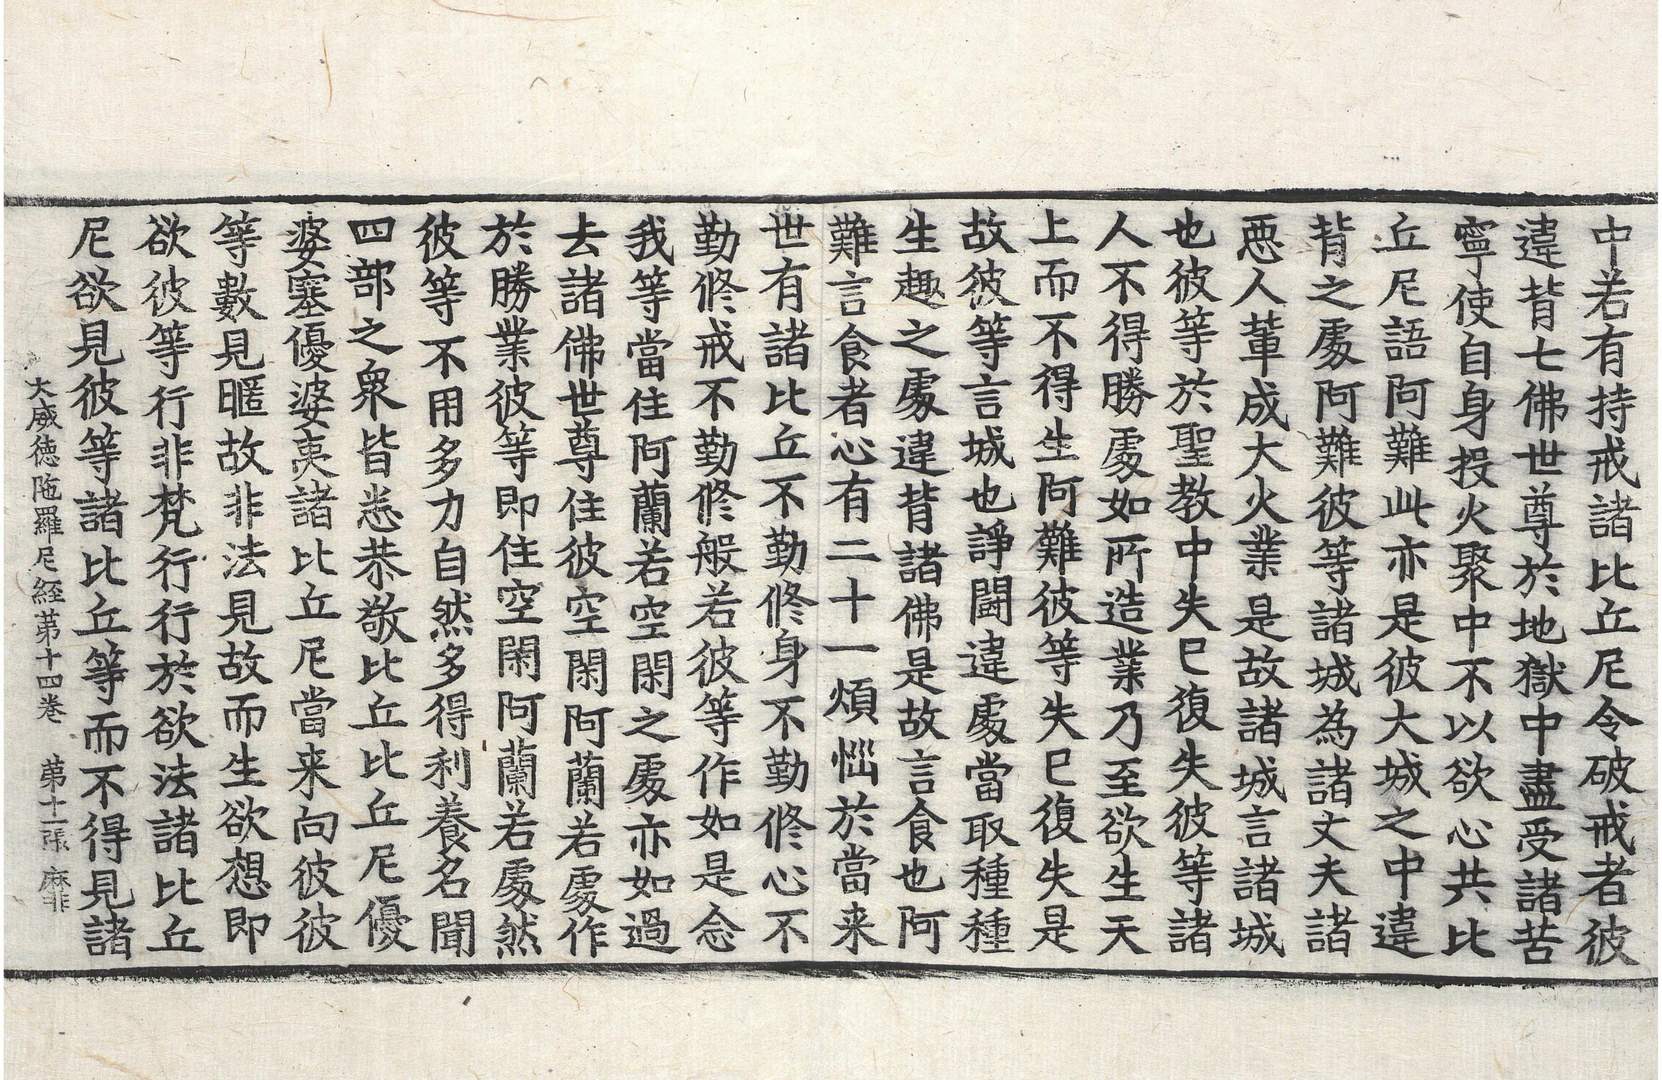 中若有持戒諸比丘尼令破戒者彼
違背七佛世尊於地獄中盡受諸苦
寧使自身投火聚中不以欲心共比
丘尼語阿難此亦是彼大城之中違
背之處阿難彼等諸城為諸丈夫諸
惡人輩成大火業是故諸城言諸城
也彼等於聖教中失已復失彼等諸
人不得勝處如所造業乃至欲生天
上而不得生阿難彼等失已復失是
故彼等言城也諍鬪違處當取種種
生趣之處違背諸佛是故言食也阿
難言食者心有二十一煩惱於當来
世有諸比丘不勤修身不勤修心不
勤修戒不勤修般若彼等作如是念
我等當住阿蘭若空閑之處亦如過
去諸佛世尊住彼空閑阿蘭若處作
於勝業彼等即住空閑阿蘭若處然
彼等不用多力自然多得利養名聞
四部之衆皆悉恭敬比丘比丘尼優
婆塞優婆夷諸比丘尼當来向彼彼
等數見暱故非法見故而生欲想即
欲彼等行非梵行行於欲法諸比丘
尼欲見彼等諸比丘等而不得見諸
大威德陁羅尼経第十四卷 第十一張 麻非